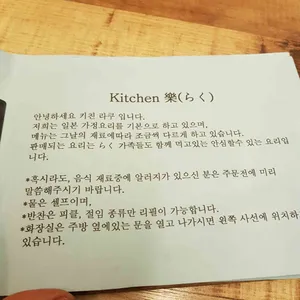 Kitchen 樂(らく)
안녕하세요 키친 라쿠 입니다.
저희는 일본 가정요리를 기본으로 하고 있으며,
메뉴는 그날의 재료에따라 조금씩 다르게 하고 있습니다.
판매되는 요리는 らく 가족들도 함께 먹고있는 안심할수 있는 요리입
니다.
*혹시라도, 음식 재료중에 알러지가 있으신 분은 주문전에 미리
말씀해주시기 바랍니다.
*물은 셀프이며,
*반찬은 피클, 절임 종류만 리필이 가능합니다.
*화장실은 주방 옆에있는 문을 열고 나가시면 왼쪽 사선에 위치하
있습니다.